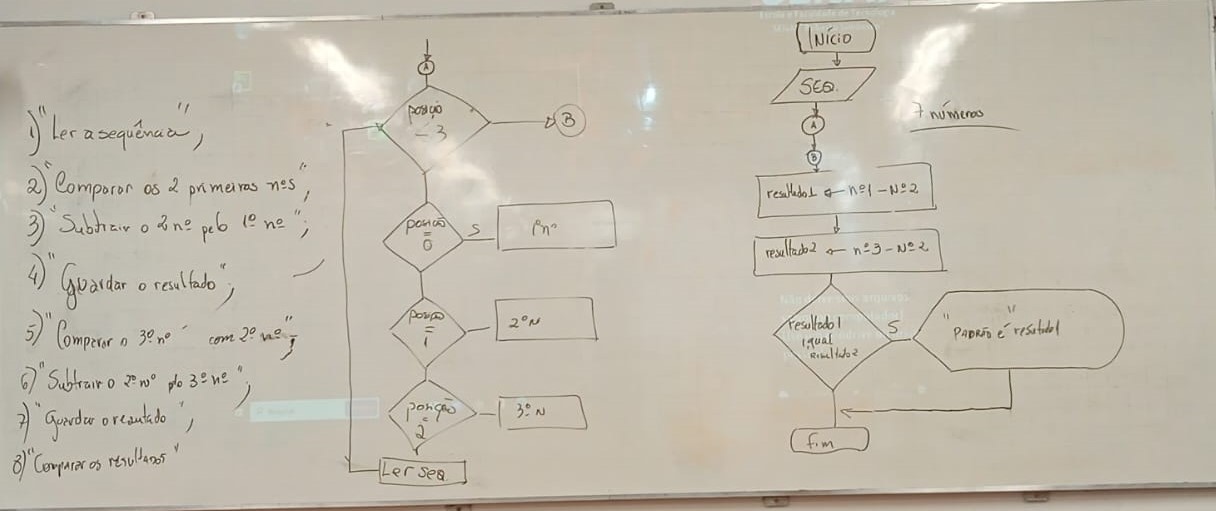 1) "Ler a sequência",
2) "Comparar os 2 primeiros nºs",
3) "Subtrair o 2 nº pelo 1º nº";
4) "Guardar o resultado";
5) "Comparar o 3º nº com 2º nº";
6) "Subtrair o 2º nº plo 3º nº",
7) "Guardar o resultado",
8) "Comparar os resultados"
A
posição
3
B
posição
=
0
S
posição
=
1
2º N
posição
=
2
3º N
Ler seq.
INÍCIO
SEQ.
A
B
7 números
resultado1 ← nº1 - Nº2
resultado2 ← nº3 - Nº2
resultado1
igual
resultado2
S
"PADRÃO é" resultado1
fim